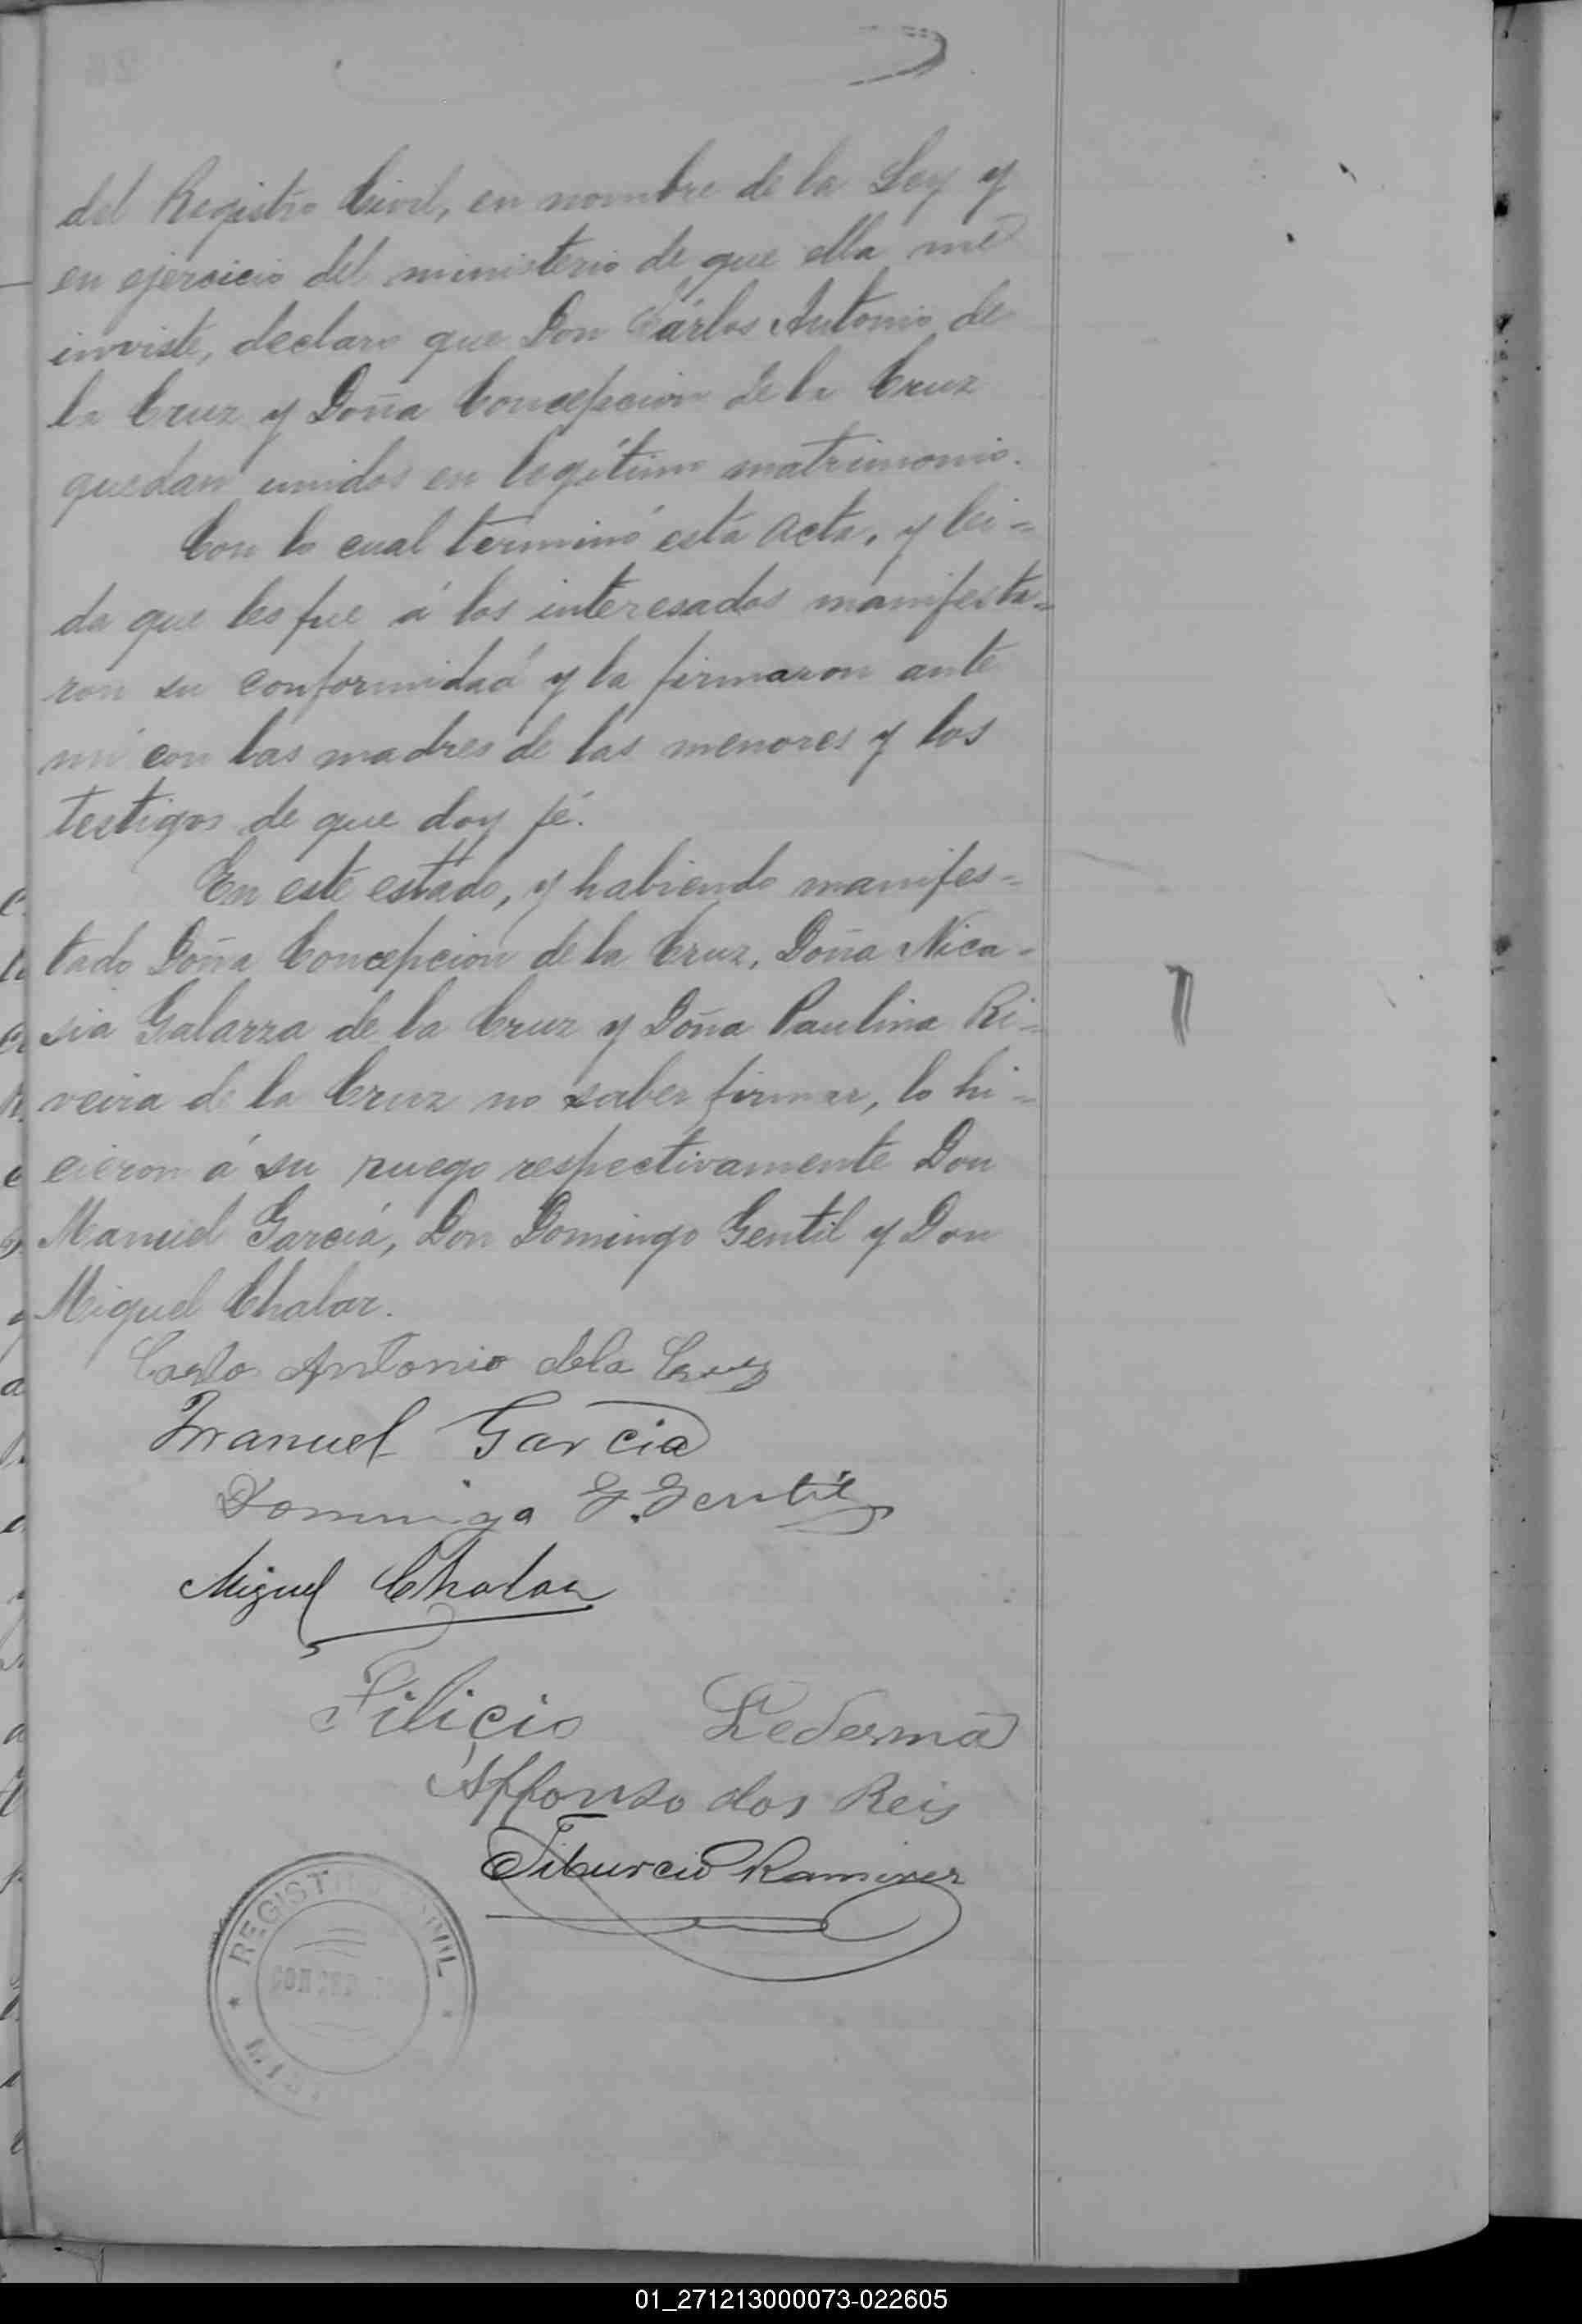 del Registro Civil, en nombre de la Ley y
en ejercicio del ministerio de que ella me
inviste, declaro que Don Cárlos Antonio de
la Cruz y Doña Concepcion de la Cruz
quedan unidos en legítimo matrimonio.
Con lo cual terminó esta acta, y lei=
da que les fue á los interesados manifesta=
ron su conformidad y la firmaron ante
mí con las madres de las menores y los
testigos de que doy fé.
En este estado, y habiendo manifes=
tado Doña Concepcion de la Cruz, Doña Nica=
sia Galarza de la Cruz y Doña Paulina Ri=
veira de la Cruz no saber firmar, lo hi=
cieron á su ruego respectivamente Don
Manuel García, Don Domingo Gentil y Don
Miguel Chalar.
Carlo Antonio dela Cruz
Manuel Garcia
Domingo G. Gentil
Miguel Chalar
Filicio Lederma
Affonso dos Reis
Tiburcio Ramirez
REGISTRO CIVIL
01_271213000073-022605